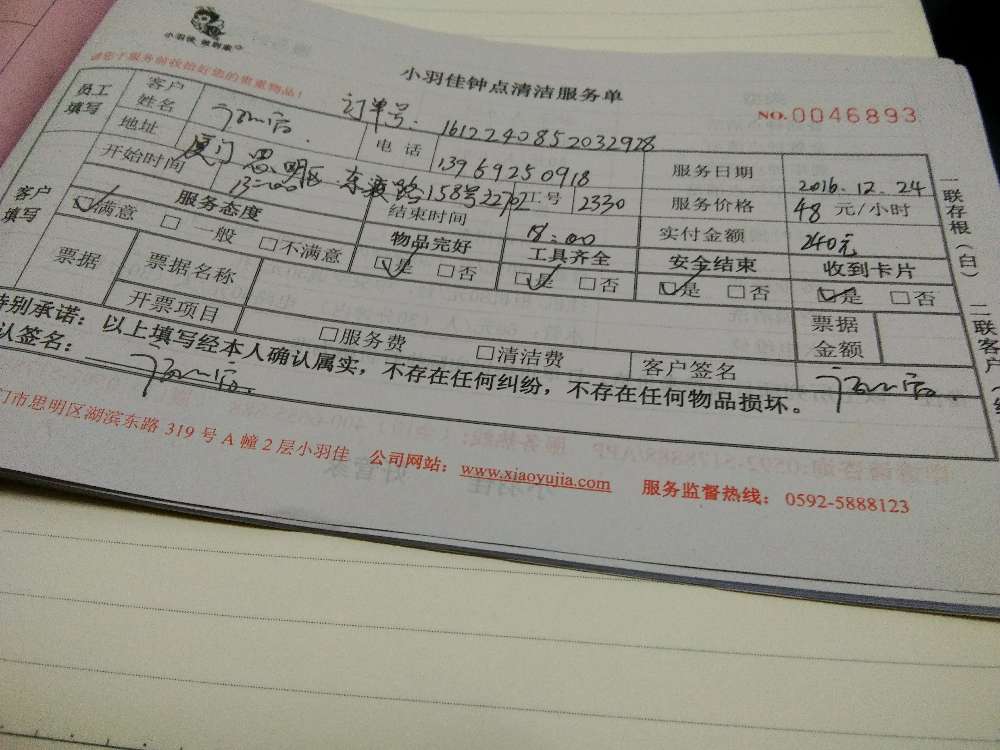 小羽佳 做到家
请您于服务前收拾好您的贵重物品！
小羽佳钟点清洁服务单
NO.0046893
员工填写
客户姓名
订单号：1612240852032928
电话 13969250918
服务日期 2016.12.24
地址 厦门 思明区 东渡路158号22702
工号 2330
服务价格 48 元/小时
开始时间 13:00
结束时间 18:00
实付金额 240元
客户填写
服务态度 物品完好 工具齐全 安全结束 收到卡片
☑满意 □一般 □不满意 ☑是 □否 ☑是 □否 ☑是 □否 ☑是 □否
票据 票据名称
开票项目 □服务费 □清洁费
票据金额
客户签名
特别承诺：以上填写经本人确认属实，不存在任何纠纷，不存在任何物品损坏。
认签名：
门市思明区湖滨东路 319 号 A 幢 2 层小羽佳 公司网站：www.xiaoyujia.com 服务监督热线：0592-5888123
一联存根（白）
二联客户